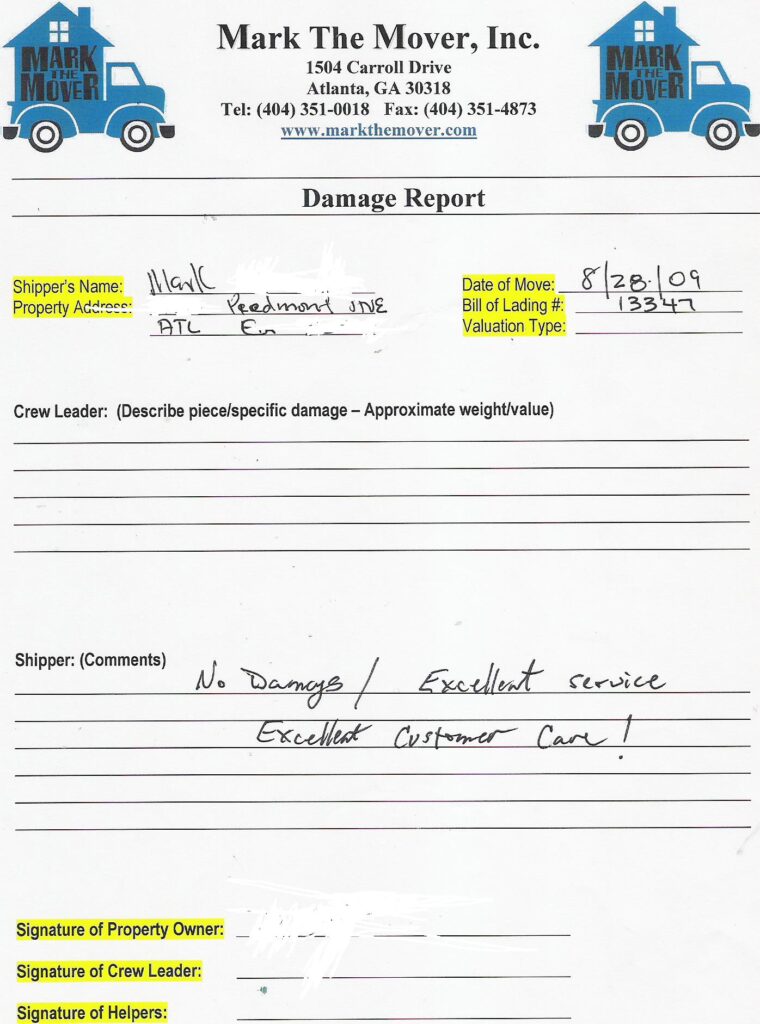 MARK THE MOVER
MARK THE MOVER
Mark The Mover, Inc.
1504 Carroll Drive
Atlanta, GA 30318
Tel: (404) 351-0018 Fax: (404) 351-4873
www.markthemover.com
Damage Report
Shipper's Name: Mark
Date of Move: 8/28/09
Property Address: Peedmont
Bill of Lading #: 13347
ATL
Valuation Type:
Crew Leader: (Describe piece/specific damage – Approximate weight/value)
Shipper: (Comments)
No Damage / Excellent service
Excellent Customer Care!
Signature of Property Owner:
Signature of Crew Leader:
Signature of Helpers: